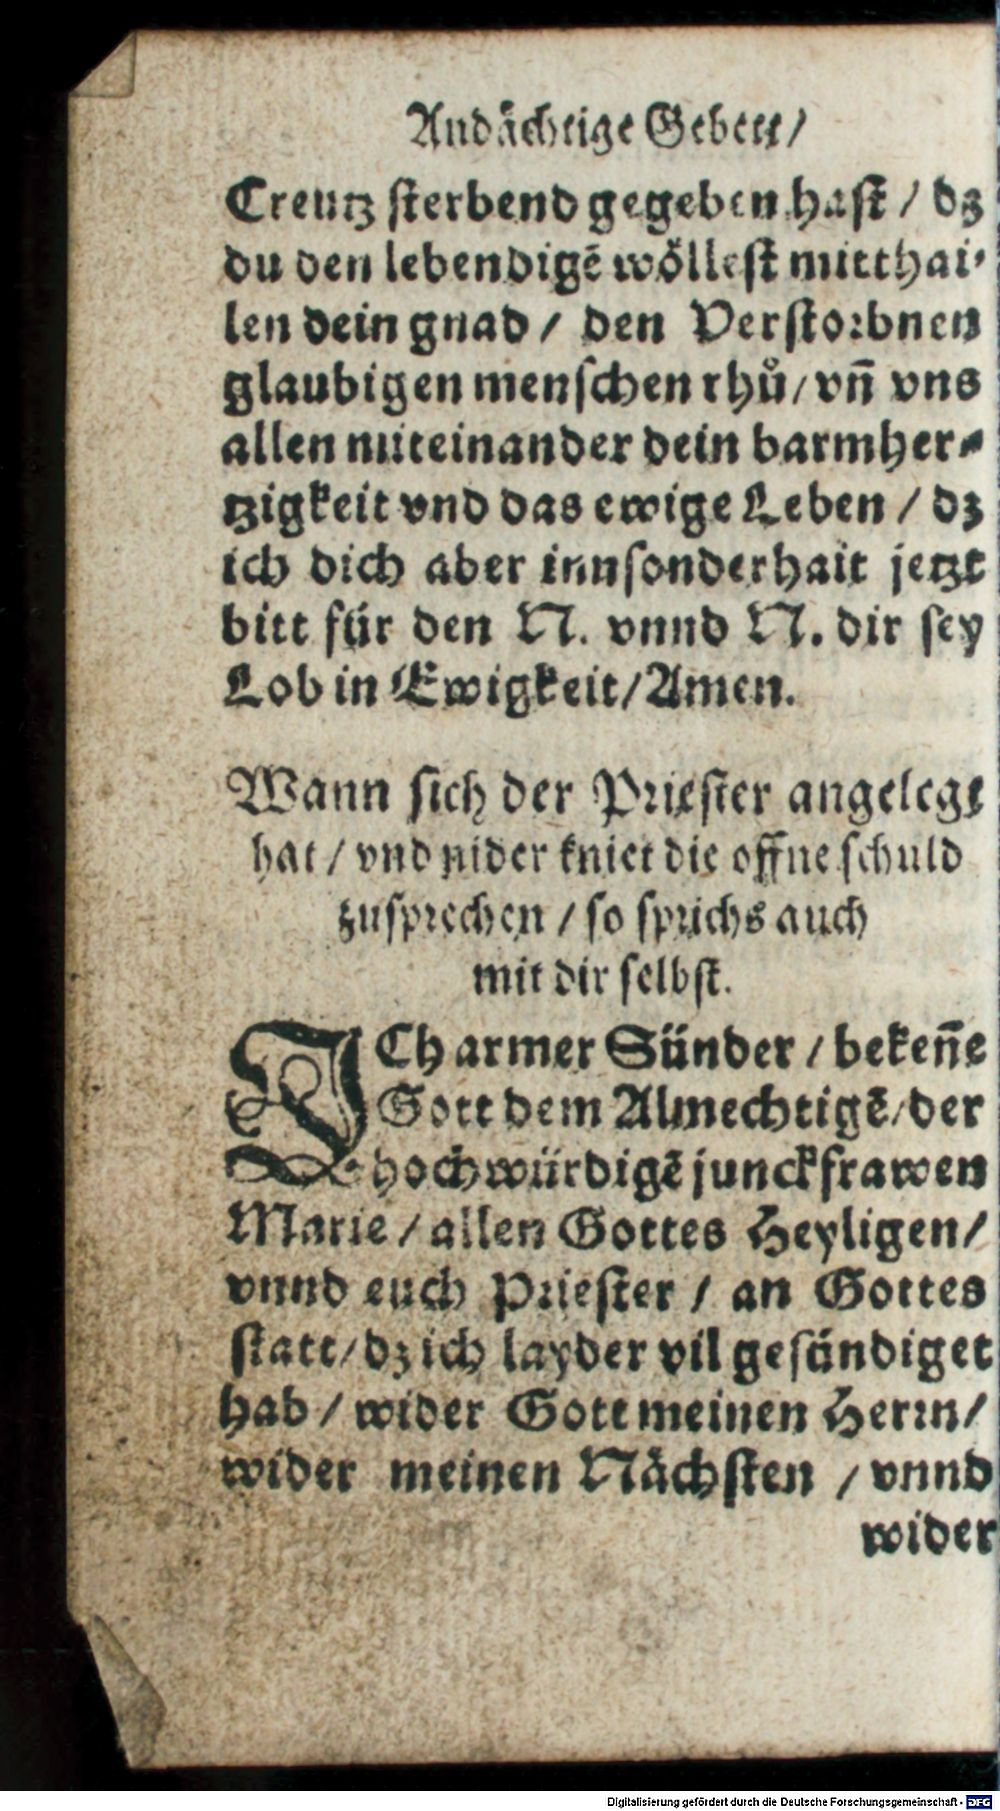 Andächtige Gebett/
Creutz sterbend gegeben hast / dz
du den lebendigē wöllest mitthai-
len dein gnad / den Verstorbnen
glaubigen menschen rhů/ vn̄ vns
allen miteinander dein barmher-
tzigkeit vnd das ewige Leben / dz
ich dich aber innsonderhait jetzt
bitt für den N. vnnd N. dir sey
Lob in Ewigkeit/Amen.
Wann sich der Priester angelegt
hat / vnd nider kniet die offne schuld
zusprechen / so sprichs auch
mit dir selbst.
ICh armer Sünder / beken̄e
Gott dem Almechtigē/der
hochwürdigē junckfrawen
Marie / allen Gottes Heyligen/
vnnd euch Priester / an Gottes
statt/dz ich layder vil gesündiget
hab / wider Gott meinen Herrn/
wider meinen Nächsten / vnnd
wider
Digitalisierung gefördert durch die Deutsche Forschungsgemeinschaft - DFG